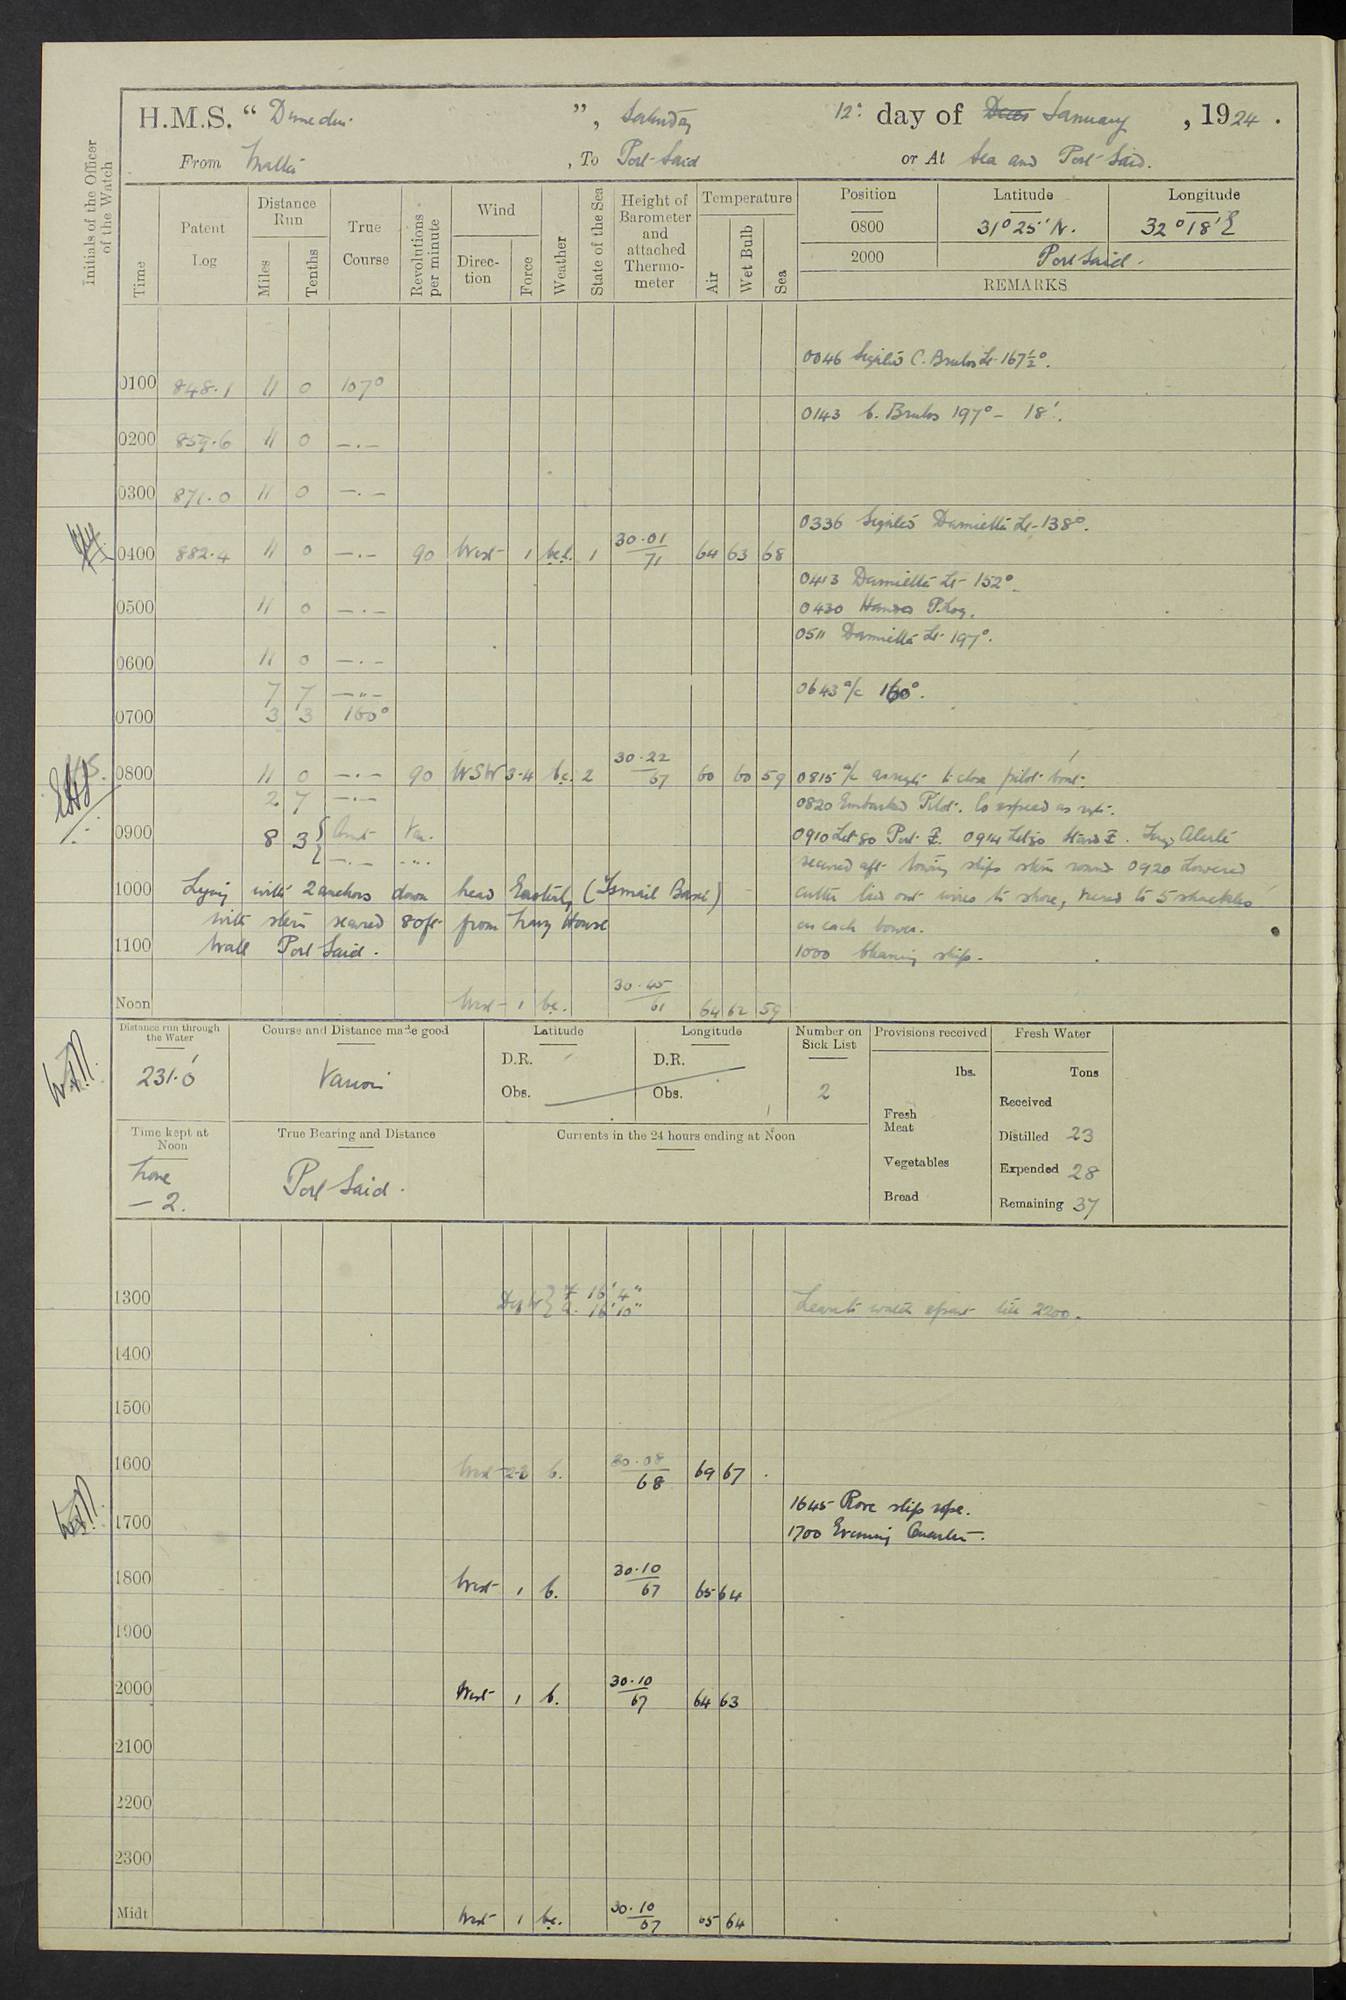 H.M.S. “ Dunedin ”, Saturday 12th day of January , 1924 .
From Malta , To Port Said or At Sea and Port Said.
Initials of the Officer of the Watch
Time
Patent Log
Distance Run
Miles
Tenths
True Course
Revolutions per minute
Wind
Direction
Force
Weather
State of the Sea
Height of Barometer and attached Thermometer
Temperature
Air
Wet Bulb
Sea
Position Latitude Longitude
0800 31° 25' N. 32° 18' E
2000 Port Said.
REMARKS
0046 Sighted C. Brulos Lt 167½°.
0100 848.1 11 0 107°
0143 C. Brulos 197° - 18'.
0200 859.6 11 0 —.—
0300 871.0 11 0 —.—
0336 Sighted Damietta Lt 138°.
0400 882.4 11 0 —.— 90 West 1 b.c. 1 30.01 / 71 64 63 68
0413 Damietta Lt 152°.
0500 11 0 —.—
0430 Handed P. Log.
0511 Damietta Lt 197°.
0600 11 0 —.—
7 7 —.—
0643 a/c 160°.
0700 3 3 160°
0800 11 0 —.— 90 WSW 3-4 bc. 2 30.22 / 67 60 60 59
0815 a/c as reqte to close pilot boat.
2 7 —.—
0820 Embarked Pilot. Co & speed as reqte.
0900 8 3 { Var.
0910 Let go Port. 0914 Let go Starb. Tug Alerte
secured aft towing ships stern round 0920 Lowered
1000 Lying with 2 anchors down head Easterly (Ismail Basin)
cutter laid out wires to shore, veered to 5 shackles
with stern secured 80ft from Navy House
on each bower.
1100 Wall Port Said.
1000 Cleaning ship.
Noon West 1 bc. 30.45 / 61 64 62 59
Distance run through the Water
231.0
Course and Distance made good
Various
Latitude
D.R.
Obs.
Longitude
D.R.
Obs.
Number on Sick List
2
Provisions received
lbs.
Fresh Meat
Vegetables
Bread
Fresh Water
Tons
Received
Distilled 23
Expended 28
Remaining 37
Time kept at Noon
Zone
— 2.
True Bearing and Distance
Port Said.
Currents in the 24 hours ending at Noon
1300 F 16' 4"
A. 16' 10"
Leave to watch till 2200.
1400
1500
1600 West 2-3 b. 30.08 / 68 69 67
1645 Rove slip rope.
1700
1700 Evening Quarters.
1800 West 1 b. 30.10 / 67 65 64
1900
2000 West 1 b. 30.10 / 67 64 63
2100
2200
2300
Midt West 1 bc. 30.10 / 67 65 64